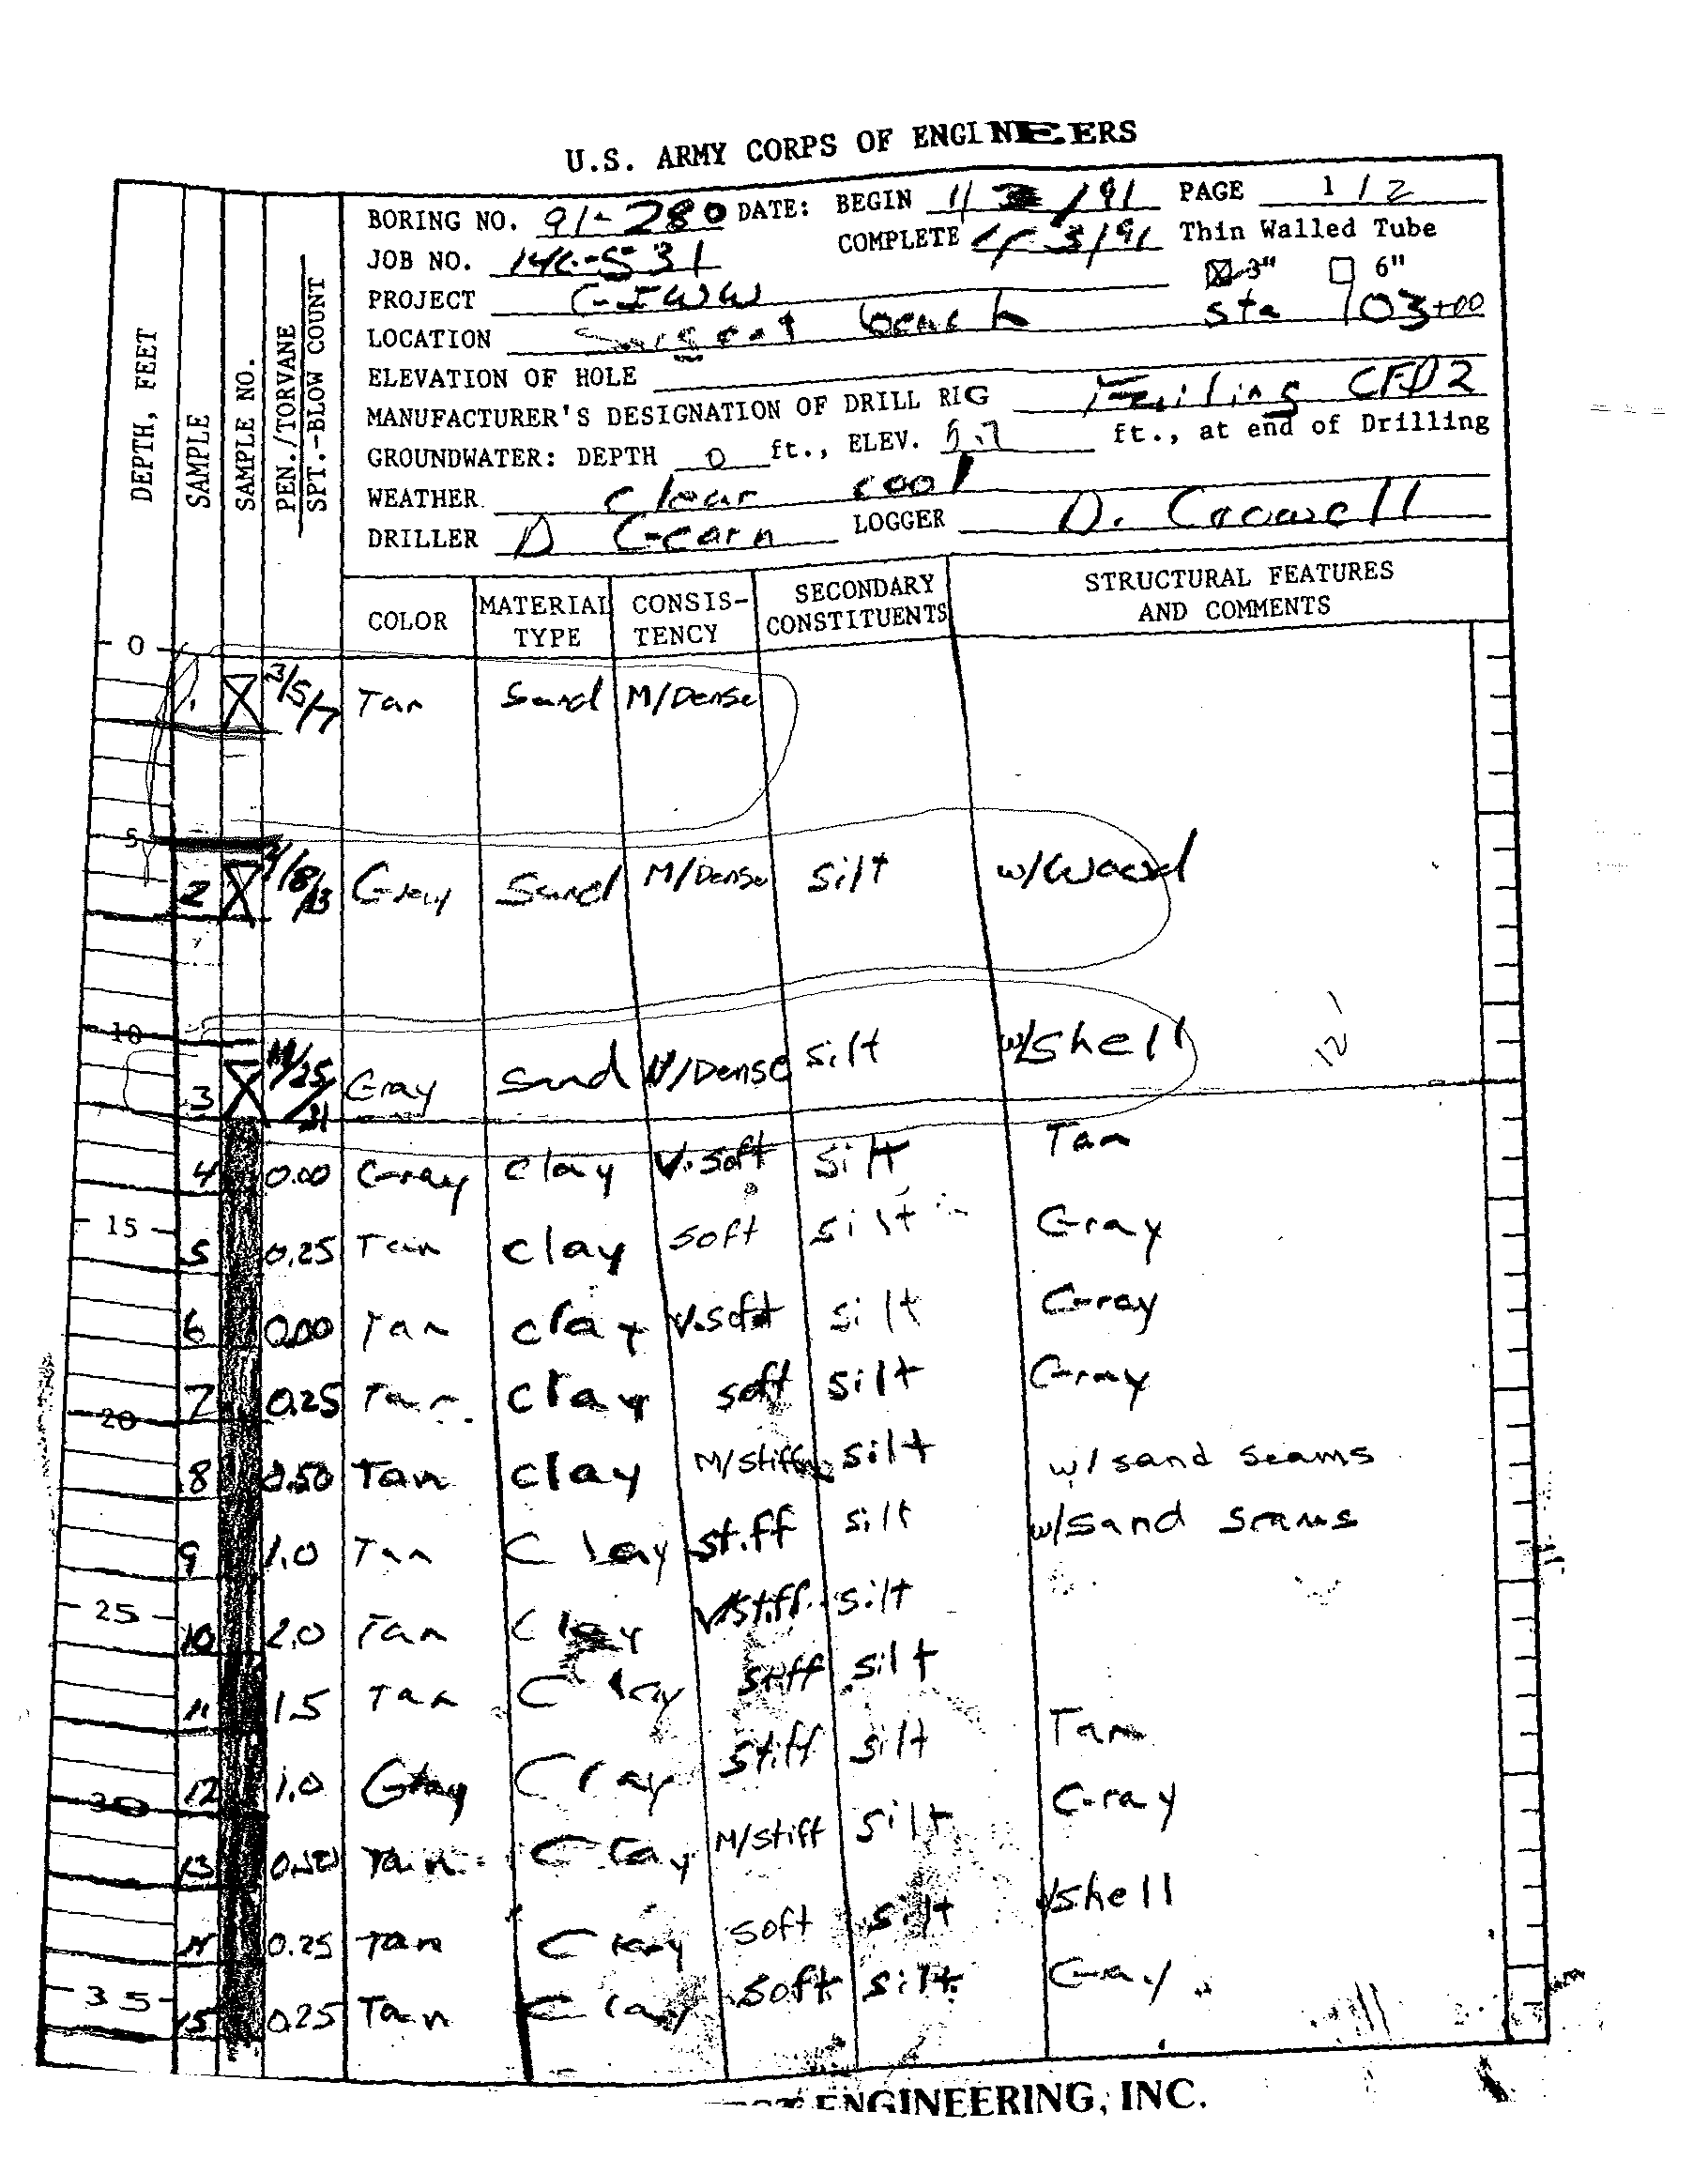 U.S. ARMY CORPS OF ENGINEERS
BORING NO. 91-280 DATE: BEGIN 11 /91 PAGE 1/2
JOB NO. COMPLETE 3/91 Thin Walled Tube
☒ 3" ☐ 6"
PROJECT GIWW
LOCATION Sargent beach sta 903+00
ELEVATION OF HOLE
MANUFACTURER'S DESIGNATION OF DRILL RIG Failing CFD2
GROUNDWATER: DEPTH 0 ft., ELEV. ft., at end of Drilling
WEATHER clear cool
DRILLER D LOGGER D. Crowell
DEPTH, FEET
SAMPLE
SAMPLE NO.
PEN./TORVANE
SPT.-BLOW COUNT
COLOR MATERIAL TYPE CONSISTENCY SECONDARY CONSTITUENTS STRUCTURAL FEATURES AND COMMENTS
0
1 3/5/7 Tan Sand M/Dense
5
2 /8/13 Gray Sand M/Dense Silt w/Wood
10
12'
3 /25/31 Gray Sand M/Dense Silt w/shell
4 0.00 Gray clay V.soft Silt Tan
15
5 0.25 Tan clay soft silt Gray
6 0.00 Tan clay V.soft silt Gray
7 0.25 Tan clay soft silt Gray
20
8 0.50 Tan clay M/stiff silt w/ sand seams
9 1.0 Tan Clay stiff silt w/sand seams
25
10 2.0 Tan Clay V/stiff silt
11 1.5 Tan Clay stiff silt
12 1.0 Gray Clay stiff silt Tan
30
13 0.50 Tan Clay M/stiff silt Gray
14 0.25 Tan Clay soft silt w/shell
35
15 0.25 Tan Clay soft silt Gray
ENGINEERING, INC.